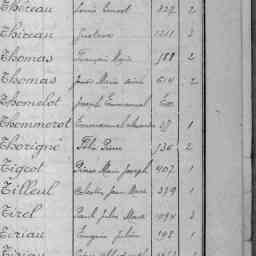 Théreau Louis Ernest 2
Thireau Gustave 1211 3
Thomas François Marie 188 2
Thomas Jean Marie 614 2
Thomelot Joseph Emmanuel
Thommerot Emmanuel 27 1
Thorigné Félix Pierre 736 2
Tigeot Pierre Marie Joseph 407 1
Tilleul Celestin Jean Marie 379 1
Tirel Paul Jules Marie 1094 3
Tiriau Eugène Julien 198 1
Tiriau